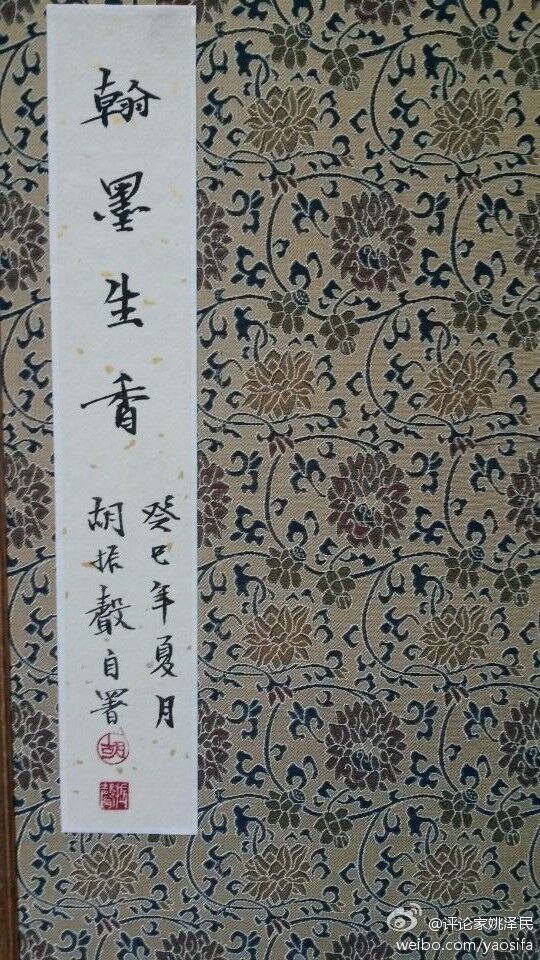 翰墨生香
癸巳年夏月
胡振聲自署
胡
振聲
@评论家姚泽民
weibo.com/yaosifa